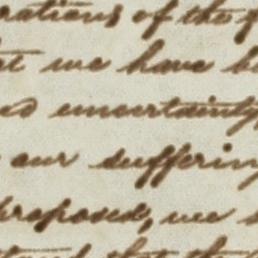 rations of the
we have
uncertainty
our suffering
proposed, we
that the